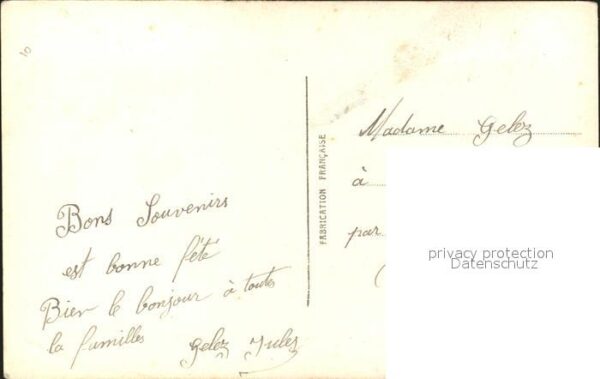 Bons Souvenirs
est bonne fêté
Bien le bonjour à toutes
la familles
Gelez Jules
FABRICATION FRANÇAISE
Madame Gelez
à
par
(
privacy protection
Datenschutz